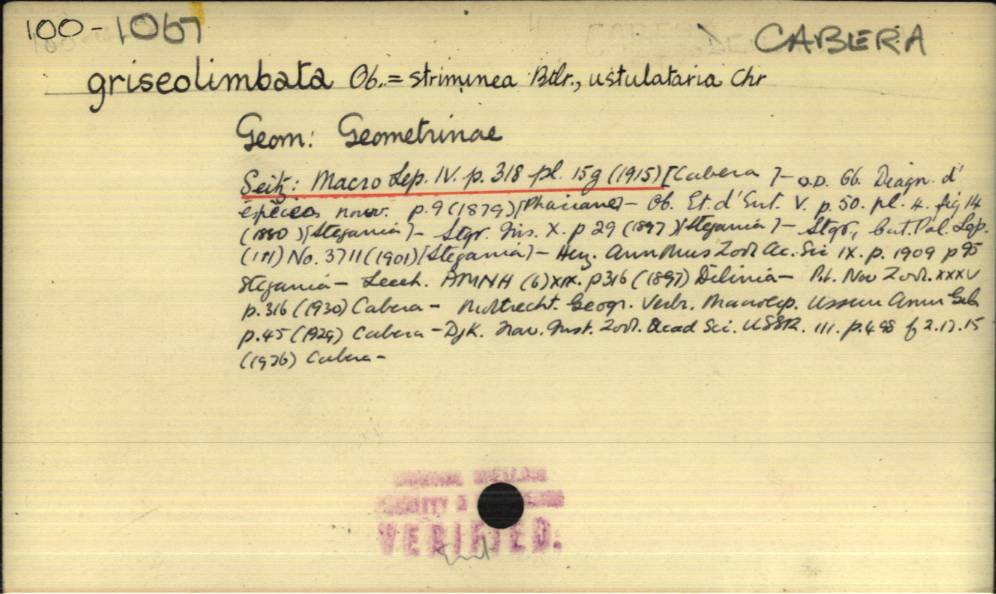 100-1067 CABERA
griseolimbata Ob. = striminea Btlr., ustulataria Chr
Geom: Geometrinae
Seitz: Macro Lep. IV. p. 318 pl. 15g (1915) [Cabera] - O.D. Ob. Diagn. d'
éspèces nouv. p.9 (1879) [Phasiane] - Ob. Et. d'Ent. V. p.50. pl. 4. fig 14
(1880) [Stegania] - Stgr. Iris. X. p 29 (1897) [Stegania] - Stgr, Cat. Pal. Lep.
No. 3711 (1901) [Stegania] - Ann. Mus Zool Ac. Sci IX. p. 1909 p 95
Stegania - Leech. AMNH (6) XIX. p316 (1897) Delinia - Nov Zool. XXXV
p.316 (1930) Cabera - Geogr. Verbr. Macrolep. Ussuri
p.45 (1929) Cabera - Djk. Trav. Inst. Zool. Acad Sci. USSR. III. p.498 f 2. 17. 15
(1936) Cabera -
VERIFIED.